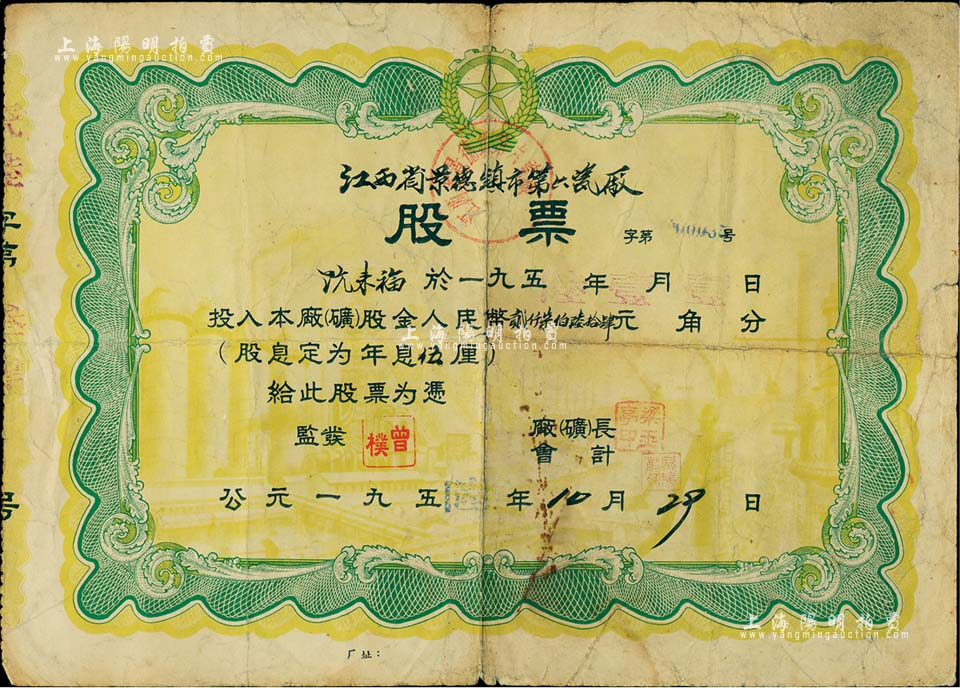 上海陽明拍賣
www.yangmingauction.com
江西省景德鎮市第六瓷厰
股票
字第 号
沈未福 於一九五 年壹月壹日
投入本廠(礦)股金人民幣貳仟柒佰陸拾肆元 角 分
(股息定为年息伍厘)
給此股票为憑
監發
曾樸
廠(礦)長
會計
公元一九五 年10月29日
厂址:
字第
号
上海陽明拍賣
www.yangmingauction.com
上海陽明拍賣
www.yangmingauction.com